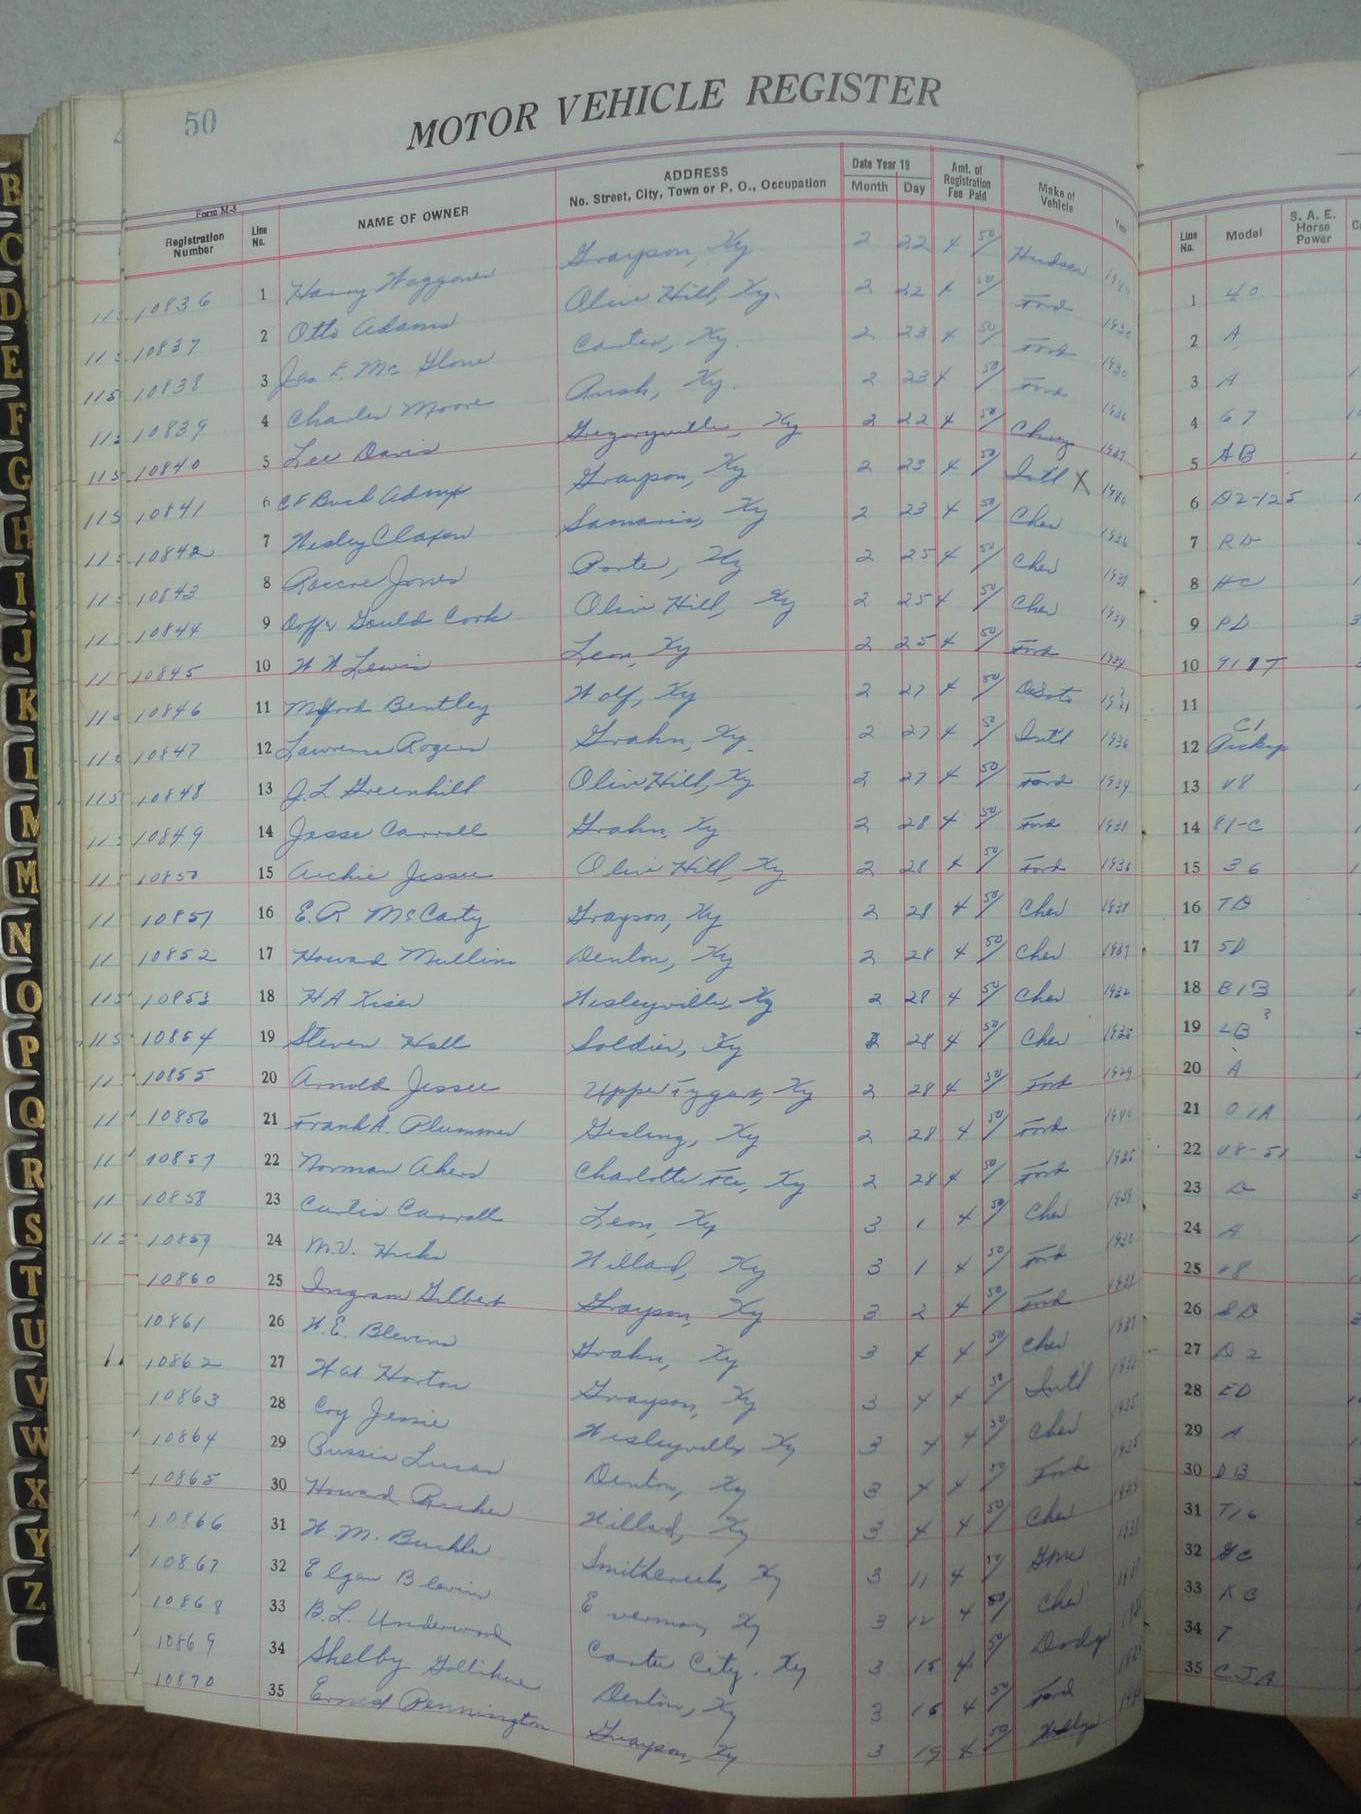 50
MOTOR VEHICLE REGISTER
Form M-3
Registration Number Line No. NAME OF OWNER ADDRESS No. Street, City, Town or P. O., Occupation Date Year 19 Month Day Amt. of Registration Fee Paid Make of Vehicle Year Line No. Model S. A. E. Horse Power
10836 1 Harry Waggoner Grayson, Ky 2 22 4 50/ Hudson 1 40
10837 2 Otto Adams Olive Hill, Ky. 2 22 4 50/ Ford 1930 2 A
10838 3 Jas E. McGlone Carter, Ky. 2 23 4 50/ Ford 1930 3 A
10839 4 Charles Moore Rush, Ky. 2 23 4 50/ Ford 1936 4 67
10840 5 Lee Davis Gregoryville, Ky 2 22 4 50/ 1927 5 AB
10841 6 Buck Grayson, Ky 2 23 4 50/ Int'l X 1940 6 D2-125
10842 7 Wesley Claxon Samaria, Ky 2 23 4 50/ Chev 1936 7 RD
10843 8 Roscoe Jones Porter, Ky 2 25 4 50/ Chev 8 HC
10844 9 Gould Cook Olive Hill, Ky 2 25 4 50/ Chev 1934 9 PD
10845 10 W W Lewis Leon, Ky 2 25 4 50/ Ford 10
10846 11 Bentley Wolf, Ky 2 27 4 50/ DeSoto 11
10847 12 Lawrence Rogers Grahn, Ky. 2 27 4 50/ Int'l 1936 12 C1 Pickup
10848 13 J.L. Greenhill Olive Hill, Ky 2 27 4 50/ Ford 1934 13 V8
10849 14 Jesse Carroll Grahn, Ky 2 28 4 50/ Ford 1938 14 81-C
10850 15 Archie Jessee Olive Hill, Ky 2 28 4 50/ Ford 1936 15 36
10851 16 E.R. McCarty Grayson, Ky 2 28 4 50/ Chev 1938 16 TD
10852 17 Howard Mullins Denton, Ky 2 28 4 50/ Chev 1937 17 SD
10853 18 H A Kiser Wesleyville, Ky 2 28 4 50/ Chev 1932 18 B1B
10854 19 Steven Hall Soldier, Ky 2 28 4 50/ Chev 19 LB ?
10855 20 Arnold Jessee Upper Tygart, Ky 2 28 4 50/ Ford 1929 20 A
10856 21 Frank A. Plummer Gesling, Ky 2 28 4 50/ Ford 1940 21 01A
10857 22 Norman Akers Charlotte Fce, Ky 2 28 4 50/ Ford 1935 22 V8-51
10858 23 Curtis Carroll Leon, Ky 3 1 4 50/ Chev 23 D
10859 24 M.V. Hicks Willard, Ky 3 1 4 50/ Ford 1930 24 A
10860 25 Ingram Gilbert Grayson, Ky 3 2 4 50/ Ford 25 V8
10861 26 W.E. Blevins Grahn, Ky 3 4 4 50/ Chev 26 SD
10862 27 Horton Grayson, Ky 3 4 4 50 Int'l 27 D 2
10863 28 Coy Jessie Wesleyville, Ky 3 4 4 50/ Chev 28 ED
10864 29 Denton, Ky 3 4 4 50/ Ford 29 A
10865 30 Howard Willard, Ky 3 4 4 50/ Chev 30 DB
10866 31 W. M. Smithcreek, Ky 3 11 4 50/ GMC 31 T16
10867 32 Elgan Blevin Ky 3 12 4 50/ Chev 32 GC
10868 33 B.L. Underwood Carter City, Ky 3 15 4 50/ Dodge 33 KC
10869 34 Shelby Gollihue Denton, Ky 3 15 4 50/ Ford 34 T
10870 35 Ernest Pennington Grayson, Ky 3 19 4 50/ Willys 35 CJA
B
C
D
E
F
G
H
I
J
K
L
M
M
N
O
P
Q
R
S
T
U
V
W
X
Y
Z